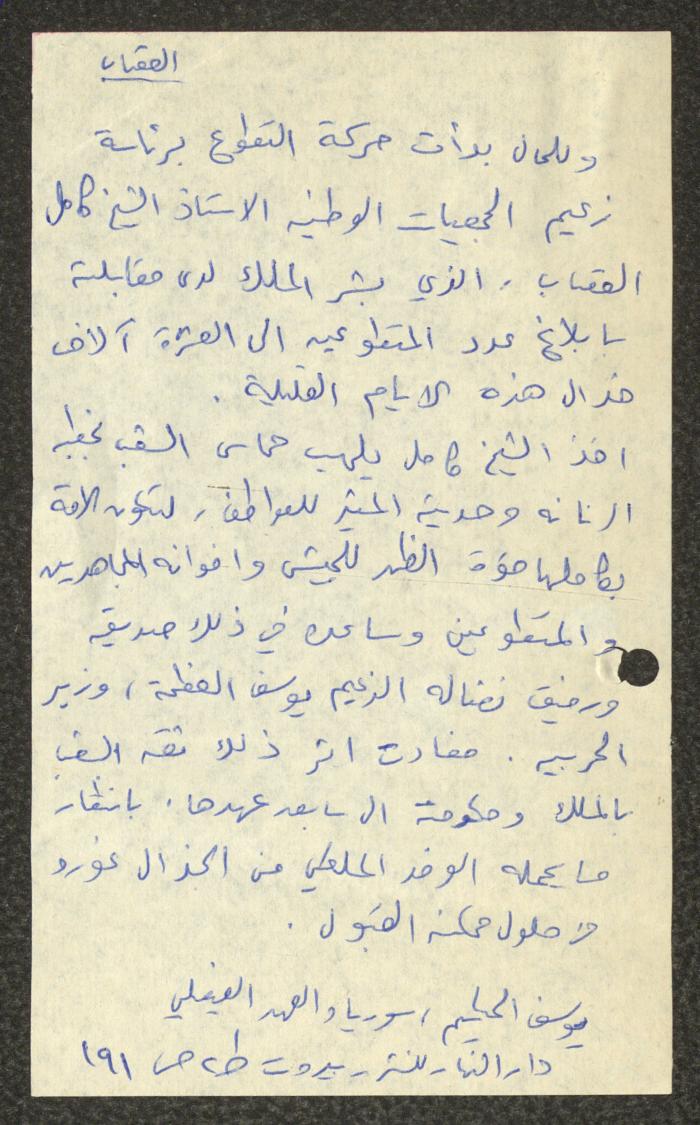 القصاب
وللحال بدأت حركة التطوع برئاسة
زعيم الجمعيات الوطنيه الاستاذ الشيخ كامل
القصاب ، الذي بشر الملك لدى مقابلته
بابلاغ عدد المتطوعين الى العشرة آلاف
خلال هذه الايام القليلة .
اخذ الشيخ كامل يلهب حماس الشعب بخطبه
الرنانه وحديثه المثير للعواطف ، لتكون الامة
بكاملها قوة الظهر للجيش واخوانه المجاهدين
والمتطوعين وساعده في ذلك صديقه
ورفيق نضاله الزعيم يوسف العظمة ، وزير
الحربيه . فعادت اثر ذلك ثقة الشعب
بالملك وحكومته الى سابعد عهدها . بانتظار
ما يحمله الوفد الملكي من الجنرال غورو
من حلول ممكنه القبول .
يوسف الحكيم ، سوريا والعهد الفيصلي
دار النهار للنشر ـ بيروت ط٢ ص ١٩١